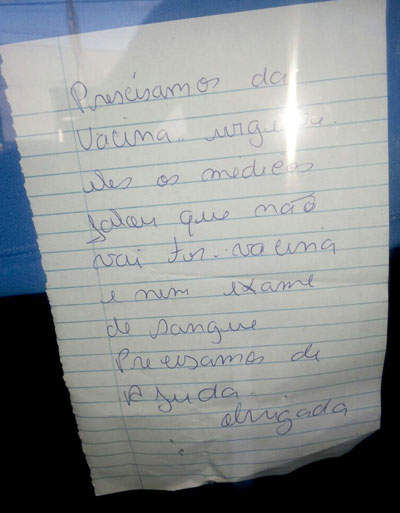 Prescisamos da
vacina urgente.
eles os médicos
falou que não
vai ter vacina
e nem exame
de sangue
Precisamos de
Ajuda.
obrigada